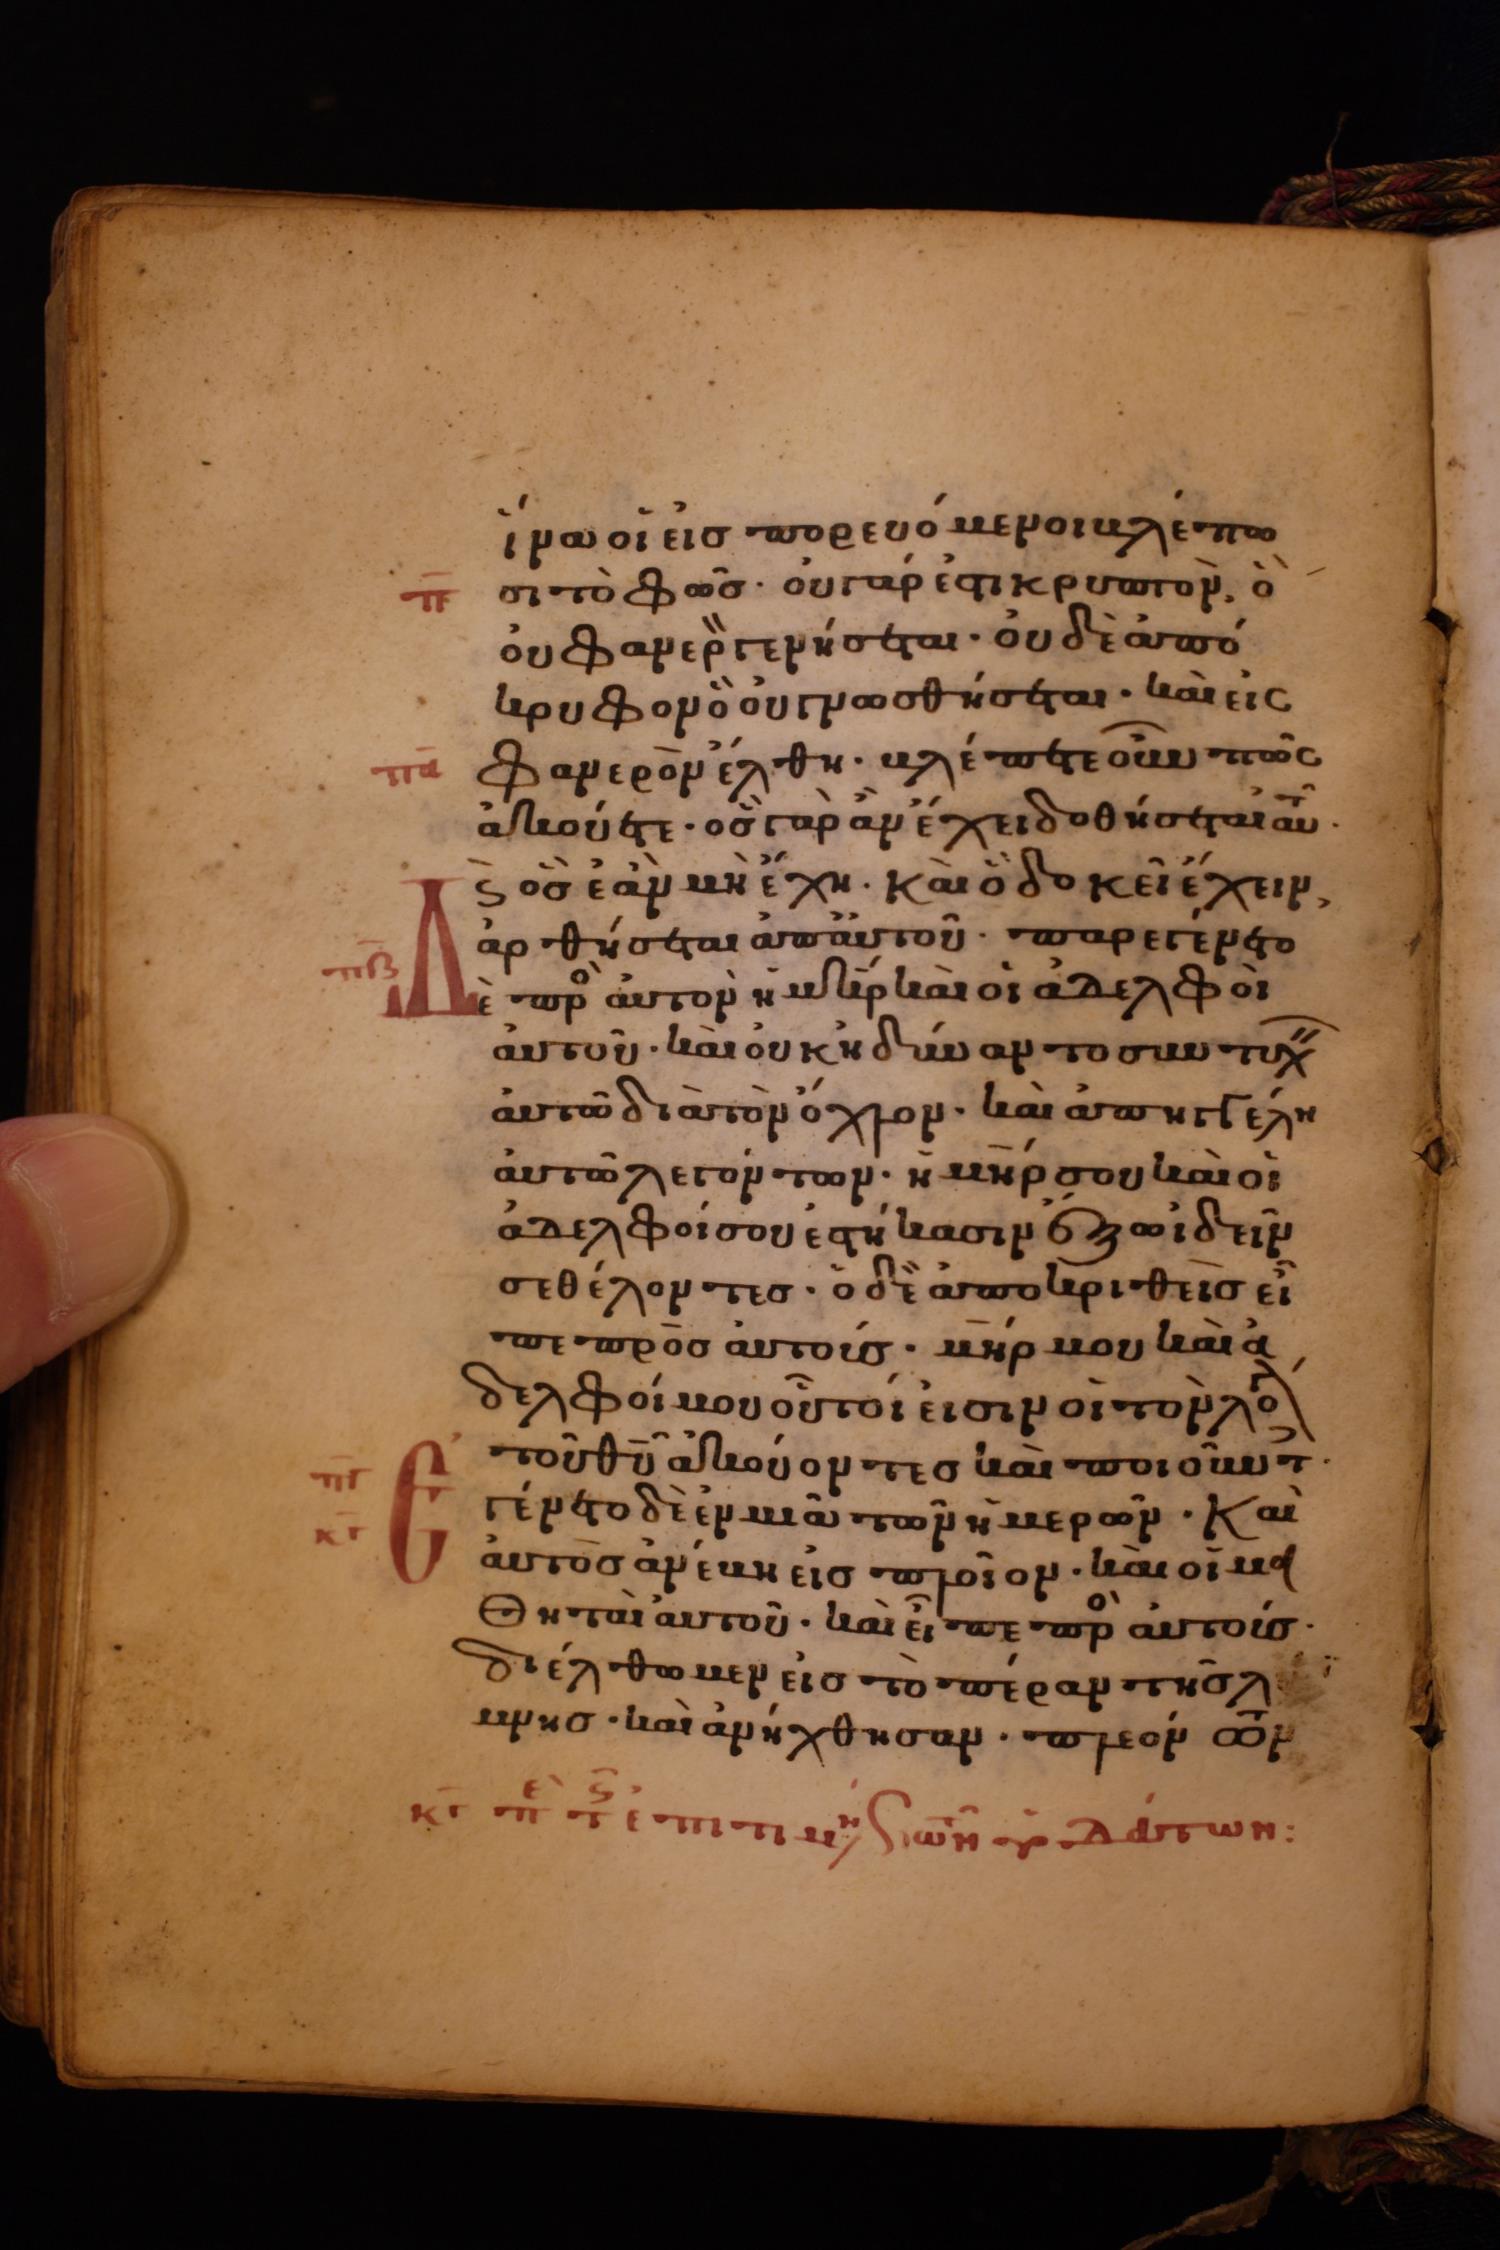 ἵνα οἱ εἰσπορευόμενοι βλέπω
π σι τὸ φῶσ· οὐ γάρ ἐστι κρυπτὸν, ὃ
οὐ φανερὸν γενήσεται· οὐδὲ ἀπό
κρυφον ὃ οὐ γνωσθήσεται· καὶ εἰς
πα φανερὸν ἔλθη· βλέπετε οὖν πῶς
ἀκούετε· ὃσ γὰρ ἂν ἔχει δοθήσεται αὐτ·
ϛ ὃσ ἐὰν μὴ ἔχη· καὶ ὃ δοκεῖ ἔχειν,
ἀρθήσεται ἀπ' αὐτοῦ· παρεγένετο
πβ Δὲ πρὸ αὐτὸν ἡ μηρ καὶ οἱ ἀδελφοὶ
αὐτοῦ· καὶ οὐκ ἠδύναντο συντυχ
αὐτῶ διὰ τὸν ὄχλον· καὶ ἀπηγγέλη
αὐτῶ λεγόντων· ἡ μηρ σου καὶ οἱ
ἀδελφοί σου ἑστήκασιν ἔξω ἰδεῖν
σε θέλοντεσ· ὁ δὲ ἀποκριθεὶσ εἶ
πε πρὸσ αὐτούσ· μηρ μου καὶ ἀ
δελφοί μου οὗτοί εἰσιν οἱ τὸν λό
τοῦ θυ ἀκούοντεσ καὶ ποιοῦντ·
πγ Ἐγένετο δὲ ἐν μιᾶ τῶν ἡμερῶν· καὶ
κγ αὐτὸσ ἀνέβη εἰσ πλοῖον· καὶ οἱ μα
θηταὶ αὐτοῦ· καὶ εἶπε πρὸ αὐτούσ·
διέλθωμεν εἰσ τὸ πέραν τῆσ λί
μνησ· καὶ ἀνήχθησαν· πλεόντων
κγ πε τ ἐπιτιμη τῶν ὑδάτων: